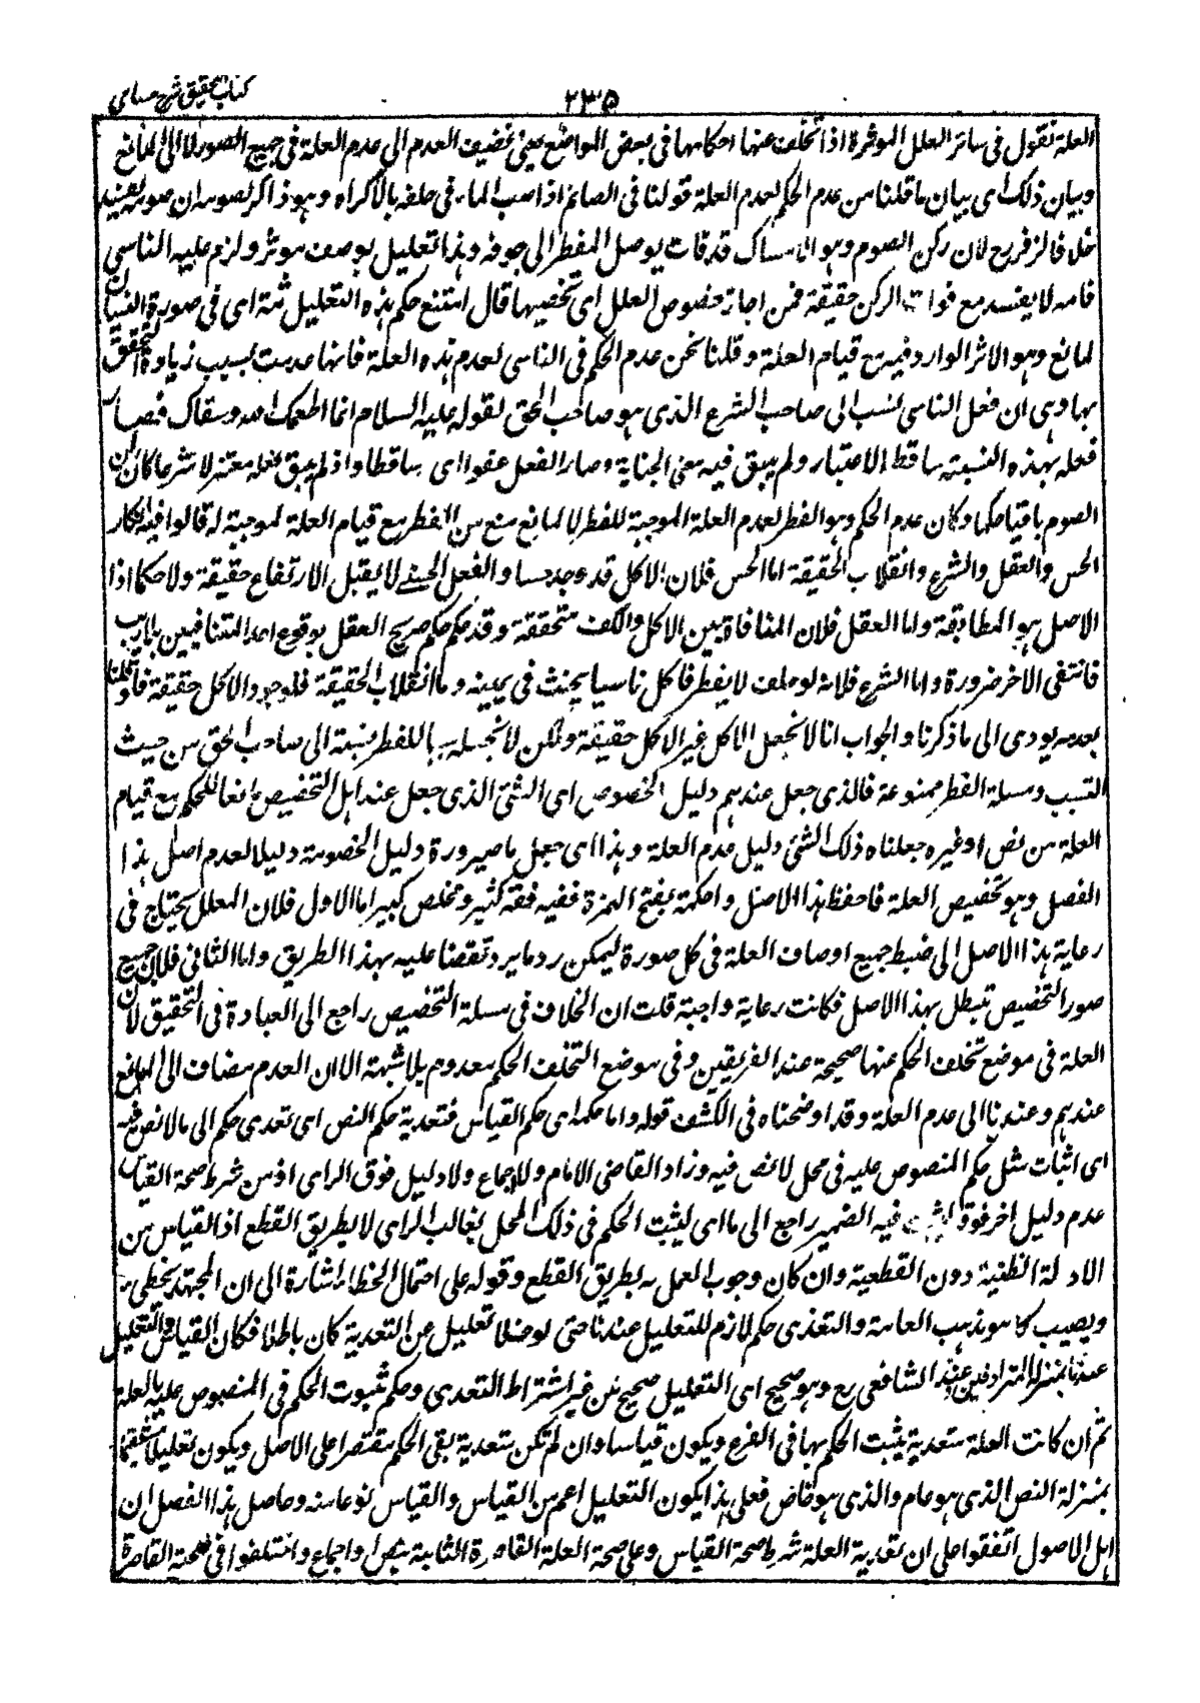 كتاب التحقيق شرح حسامى
٢٣٥
العلة نقول فى سائر العلل الموثرة اذا تخلف عنها احكامها فى بعض المواضع يعنى نضيف العدم الى عدم العلة فى جميع الصور لا الى المانع
وبيان ذلك اى بيان ما قلنا من عدم الحكم لعدم العلة قولنا فى الصائم اذا صب الماء فى حلقه بالاكراه وهو ذاكر لصومه ان صومه يفسد
خلافا لزفر رح لان ركن الصوم وهو الامساك قد فات بوصل المفطر الى جوفه وهذا تعليل بوصف موثر ولزم عليه الناسى
فانه لا يفسد مع فوات الركن حقيقة فمن اجاز خصوص العلل اى تخصيصها قال امتنع حكم هذه التعليل ثمة اى فى صورة النسيان
لمانع وهو الاثر الوارد فيه مع قيام العلة وقلنا نحن عدم الحكم فى الناسى لعدم هذه العلة فانها عدمت بسبب زيادة التحقق
بها وهى ان فعل الناسى نسب الى صاحب الشرع الذى هو صاحب الحق لقوله عليه السلام انما اطعمك الله وسقاك فصار
فعله بهذه النسبة ساقط الاعتبار ولم يبق فيه معنى الجناية وصار الفعل عفوا اى ساقطا واذ لم يبق فعله معتبرا شرعا كان ركن
الصوم باقيا حكما وكان عدم الحكم وهو الفطر لعدم العلة الموجبة للفطر لا لمانع منع من الفطر مع قيام العلة الموجبة له قالوا فيه انكار
الحس والعقل والشرع وانقلاب الحقيقة اما الحس فلان الاكل قد وجد حسا والفعل الحسى لا يقبل الارتفاع حقيقة ولا حكما اذا
الاصل هو المطابقة واما العقل فلان المنافاة بين الاكل والكف متحققة وقد حكم حكم صريح العقل بوقوع احد المتنافيين بلا ريب
فانتفى الاخر ضرورة واما الشرع فلانه لو حلف لا يفطر فاكل ناسيا يحنث فى يمينه واما انقلاب الحقيقة فلوجود الاكل حقيقة فلو قلنا
بعدمه يودى الى ما ذكرنا والجواب انا لا نجعل الاكل غير الاكل حقيقة ولكن لا نجعله سببا للفطر بنسبته الى صاحب الحق من حيث
التسبب ومسئلة الفطر ممنوعة فالذى جعل عندهم دليل الخصوص اى الشئ الذى جعل عند اهل التخصيص مانعا للحكم مع قيام
العلة من نص او غيره جعلناه ذلك الشئ دليل عدم العلة وهذا اى جعل ما صيروره دليل الخصوصة دليلا لعدم اصل هذا
الفصل وهو تخصيص العلة فاحفظ هذا الاصل واحكمه بفتح الهمزة ففيه فقه كثير ومخلص كبير اما الاول فلان المعلل يحتاج فى
رعاية هذا الاصل الى ضبط جميع اوصاف العلة فى كل صورة ليمكن رد ما يرد نقضا عليه بهذا الطريق واما الثانى فلان جميع
صور التخصيص تبطل بهذا الاصل فكانت رعاية واجبة قلت ان الخلاف فى مسئلة التخصيص راجع الى العبارة فى التحقيق لان
العلة فى موضع تخلف الحكم عنها صحيحة عند الفريقين وفى موضع التخلف الحكم معدوم بلا شبهة الا ان العدم مضاف الى المانع
عندهم وعندنا الى عدم العلة وقد اوضحناه فى الكشف قوله واما حكمه اى حكم القياس فتعدية حكم النص اى تعدى حكم الى مالانص فيه
اى اثبات مثل حكم المنصوص عليه فى محل لانص فيه وزاد القاضى الامام ولا اجماع ولا دليل فوق الراى اذ من شرط صحة القياس
عدم دليل اخر فوقه ليثبت فيه الضمير راجع الى ما اى ليثبت الحكم فى ذلك المحل بغالب الراى لا بطريق القطع اذ القياس من
الادلة الظنية دون القطعية وان كان وجوب العمل به بطريق القطع وقوله على احتمال الخطاء اشارة الى ان المجتهد يخطى
ويصيب كما هو مذهب العامة والتعدى حكم لازم للتعليل عندنا حتى لو خلا تعليل عن التعدية كان باطلا فكان القياس والتعليل
عندنا بمنزلة المترادفين عند الشافعى رح وهو صحيح اى التعليل صحيح من غير اشتراط التعدى وحكم ثبوت الحكم فى المنصوص عليه بالعلة
ثم ان كانت العلة متعدية يثبت الحكم بها فى الفرع ويكون قياسا وان لم تكن متعدية بقى الحكم مقتصرا على الاصل ويكون تعليلا مستقيما
بمنزلة النص الذى هو عام والذى هو خاص فعلى هذا يكون التعليل اعم من القياس والقياس نوعا منه وحاصل هذا الفصل ان
اهل الاصول اتفقوا على ان تعدية العلة شرط صحة القياس وعلى صحة العلة القاصرة الثابتة بنص او اجماع واختلفوا فى صحة القاصرة